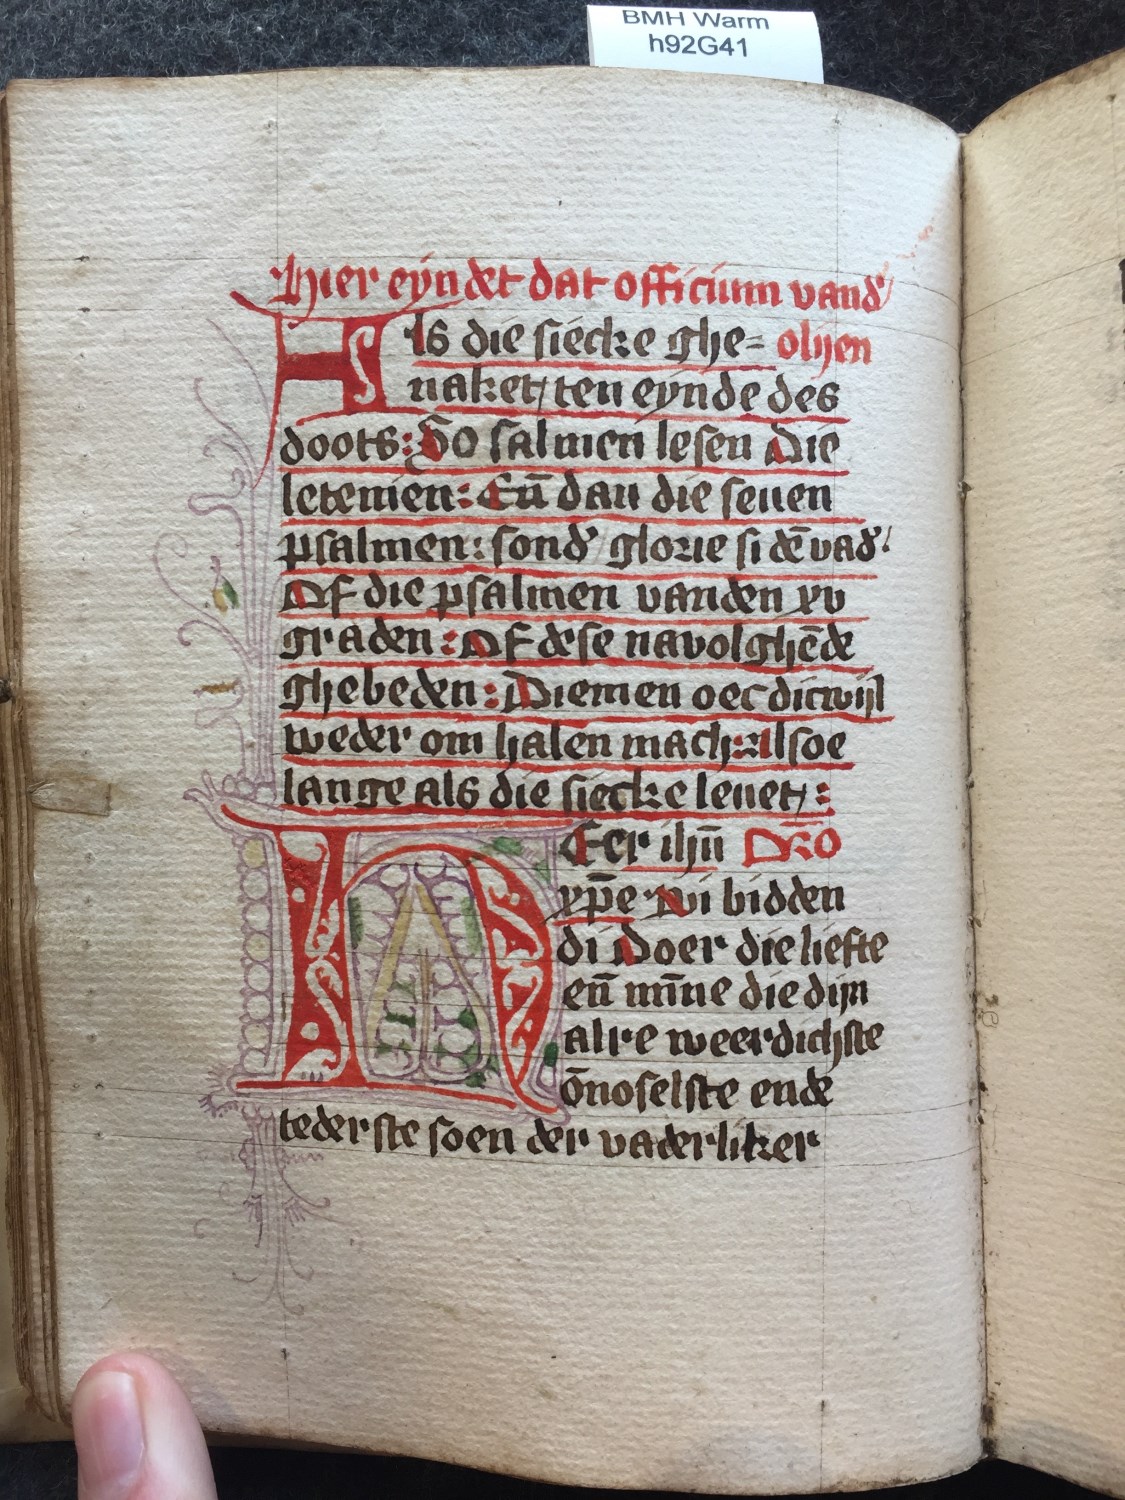 BMH Warm
h92G41
hier eyndet dat officium vand'
Als die siecke ghe= olijen
naket, ten eynde des
doots: So salmen lesen die
letenien: Eñ dan die seuen
psalmen: sond' glorie si dē vad'
Of die psalmen vanden xv
graden: Of dese navolghēde
ghebeden: Diemen oec dicwijl
weder om halen mach: Alsoe
lange als die siecke leuet:
HEer ihū
xp̄e wi bidden
di doer die liefte
eñ mīne die dijn
alre weerdichste
ōnoselste ende
tederste soen der vaderliker